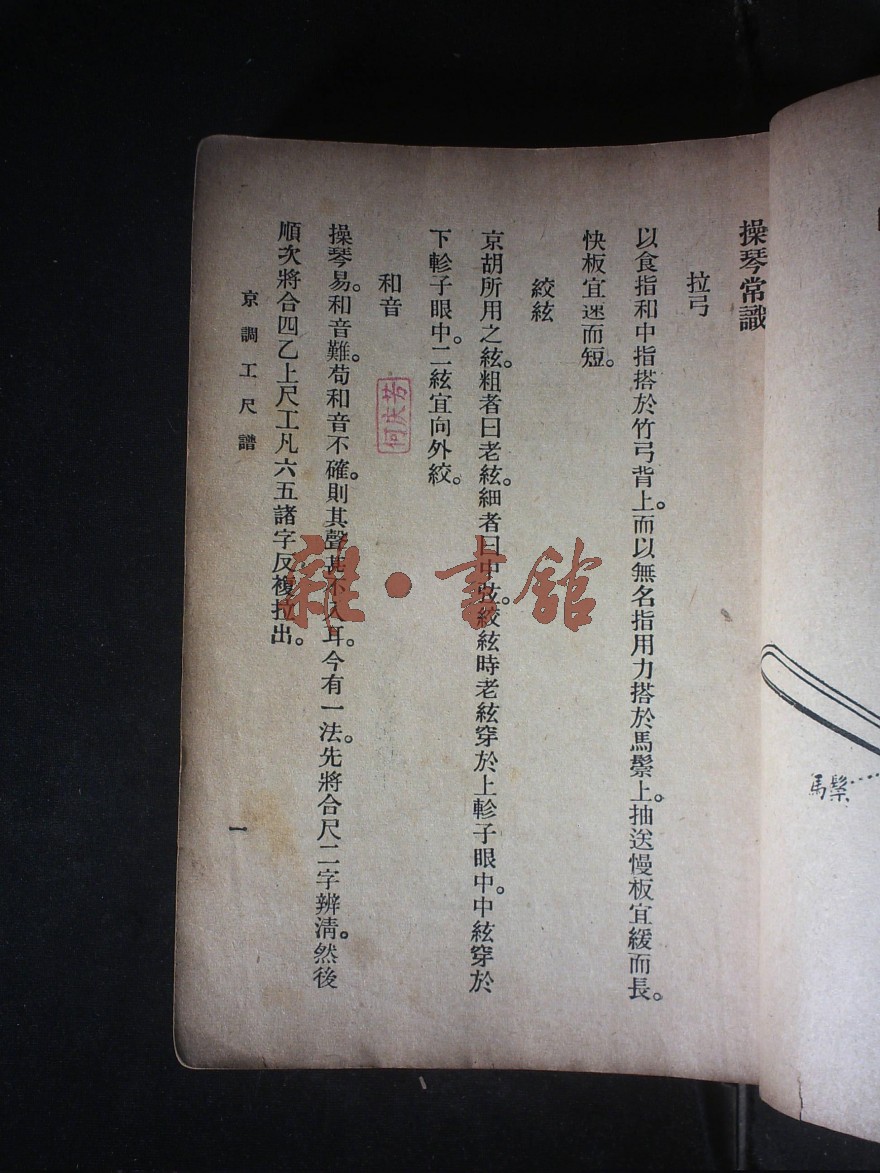 操琴常識
拉弓
以食指和中指搭於竹弓背上。而以無名指用力搭於馬鬃上。抽送慢板宜緩而長。
快板宜速而短。
絞絃
京胡所用之絃。粗者曰老絃。細者曰中弦。絞絃時老絃穿於上軫子眼中。中絃穿於
下軫子眼中。二絃宜向外絞。
和音
操琴易。和音難。苟和音不確。則其聲甚不入耳。今有一法。先將合尺二字辨清。然後
順次將合四乙上尺工凡六五諸字反複拉出。
京調工尺譜
一
馬鬃
何庆若
雜·書館